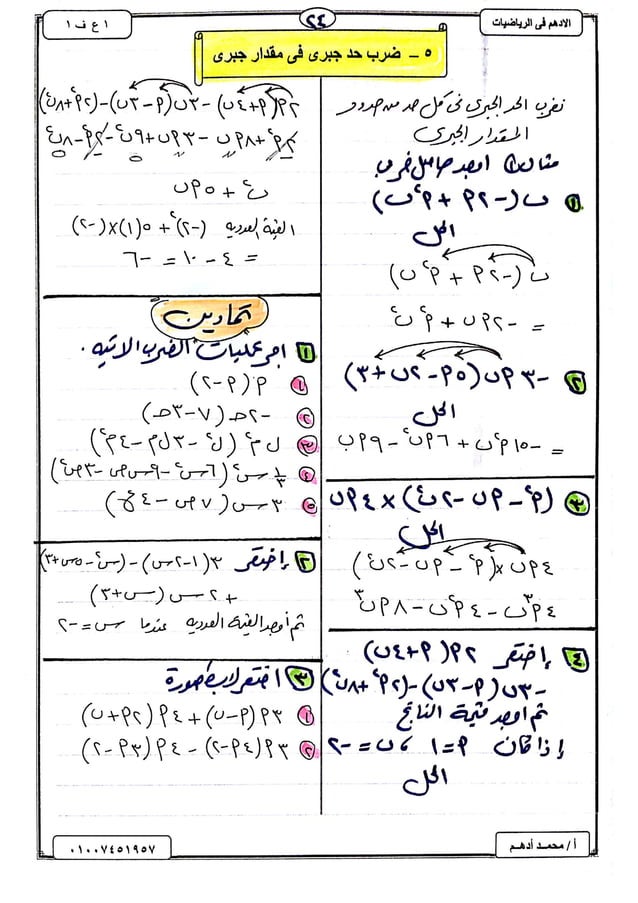 الادهم فى الرياضيات
٢٤
١ ع ف ١
٥ – ضرب حد جبرى فى مقدار جبرى
نضرب الحد الجبرى فى كل حد من حدود
المقدار الجبرى
مثال ١ اوجد حاصل ضرب
١ ب (-٢٢ + ٢ب)
الحل
ب (-٢٢ + ٢ب)
= -٢٢ب + ٢ب
٢ -٣ ٢ ب (٥ ٢ - ٢ ب + ٣)
الحل
= -١٥ ٢ب + ٦ ٢ب - ٩ ٢ب
٣ (٢ - ٢ب - ٢ب) × ٤ ٢ب
الحل
٤ ٢ب × (٢ - ٢ب - ٢ب)
٤ ٢ب - ٤ ٢ب - ٨ ٢ب
٤ إختصر ٢ ٢ (٢ + ٤ب)
-٣ب (٢ - ٣ب) - (٢ ٢ + ٨ب)
ثم اوجد قيمة الناتج
إذا كان ٢ = ١ ، ب = -٢
الحل
٢ ٢ (٢ + ٤ب) - ٣ب (٢ - ٣ب) - (٢ ٢ + ٨ب)
٢ ٢ + ٨ ٢ب - ٣ ٢ب + ٩ب - ٢ ٢ - ٨ب
ب + ٥ ٢ب
القيمة العددية (-٢)² + ٥(١)×(-٢)
= ٤ - ١٠ = -٦
تمارين
١ اجر عمليات الضرب الاتيه .
١ ٢ (٢ - ٢)
٢ -٢حـ (٧ - ٣حـ)
٣ ل م² (ل² - ٣ ل م - ٤ م²)
٤ ١/٣ س² (٦ س² - ٩ س ص - ٣ ص²)
٥ ٣ س (٧ ص - ٤ ع)
٢ إختصر ٣ (١ - ٢ س) - (س² - ٥ س + ٣)
+ ٢ س (س + ٣)
ثم أوجد القيمة العدديه عندما س = -٢
٣ اختصر لابسط صورة
١ ٣ ٢ (٢ - ب) + ٤ ٢ (٢ ٢ + ب)
٢ ٣ ٢ (٤ ٢ - ٢) - ٤ ٢ (٣ ٢ - ٢)
أ / محمد أدهم
٠١٠٠٧٤٥١٩٥٧